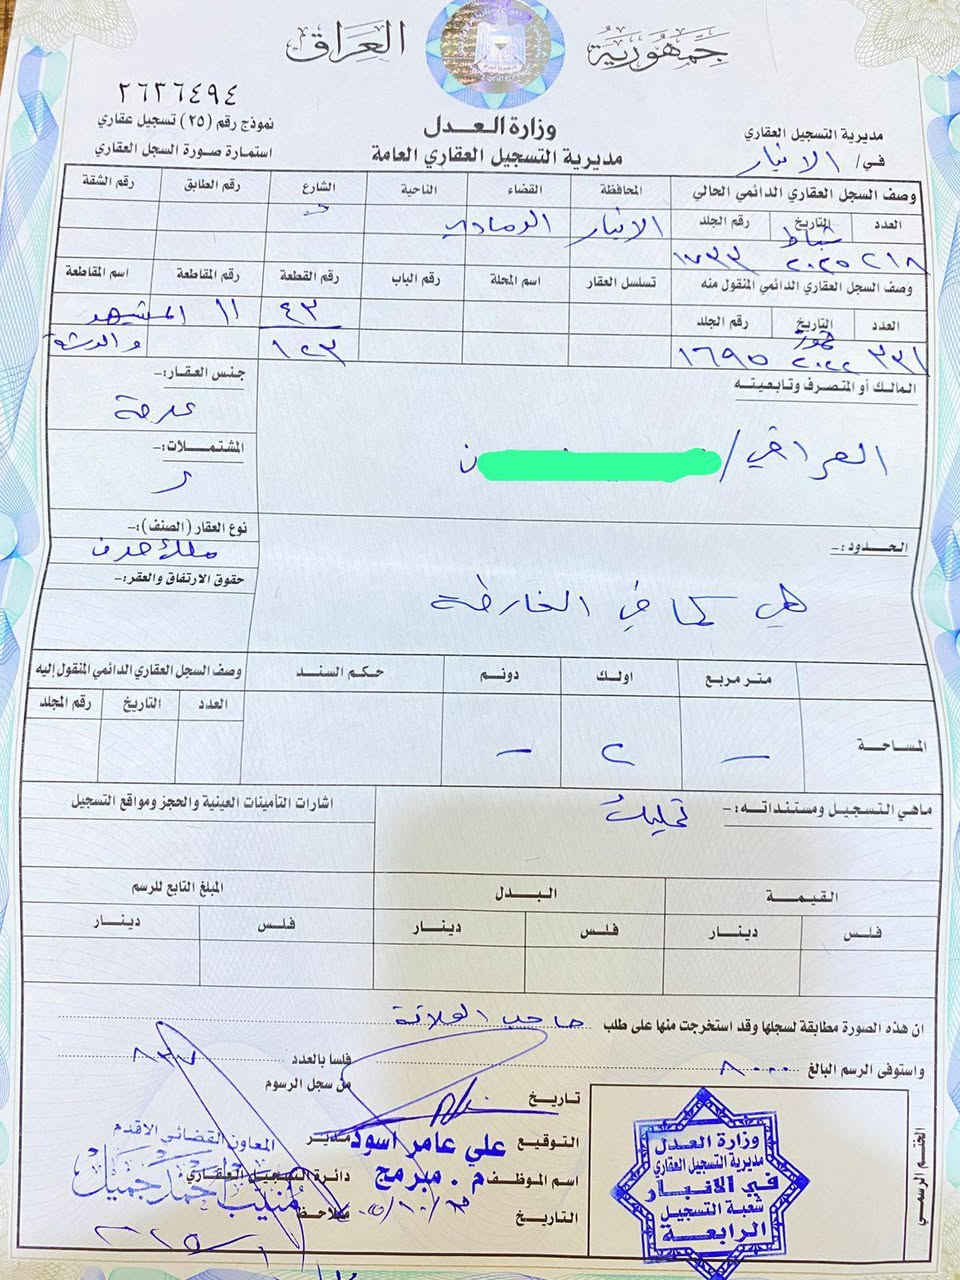 جمهورية العراق
٢٦٣٦٤٩٤
نموذج رقم (٢٥) تسجيل عقاري
استمارة صورة السجل العقاري
وزارة العدل
مديرية التسجيل العقاري العامة
مديرية التسجيل العقاري
في/ الانبار
وصف السجل العقاري الدائمي الحالي المحافظة القضاء الناحية الشارع رقم الطابق رقم الشقة
العدد التاريخ رقم الجلد
الانبار الرمادي
٢١٨ شباط ٢٠٢٥ ١٧٣٣
وصف السجل العقاري الدائمي المنقول منه تسلسل العقار اسم المحلة رقم الباب رقم القطعة رقم المقاطعة اسم المقاطعة
العدد التاريخ رقم الجلد
٤٣ ١١ المشيهد
٣٣١ تموز ٢٠٢٢ ١٦٩٥ ١٢٣
المالك أو المتصرف وتابعيته
جنس العقار:-
عرصة
العراقي/
المشتملات:-
نوع العقار (الصنف):-
ملك صرف
الحدود:-
حقوق الارتفاق والعقر:-
هي كما في الخارطة
متر مربع اولك دونم حكم السند وصف السجل العقاري الدائمي المنقول إليه
العدد التاريخ رقم المجلد
المساحة - ٢ -
ماهي التسجيل ومستنداته:- تمليك
اشارات التأمينات العينية والحجز ومواقع التسجيل
القيمة البدل المبلغ التابع للرسم
فلس دينار فلس دينار فلس دينار
ان هذه الصورة مطابقة لسجلها وقد استخرجت منها على طلب صاحب العلاقة
واستوفى الرسم البالغ ٨٠٠٠ فلسا بالعدد
من سجل الرسوم
تاريخ
التوقيع علي عامر اسود مدير
المعاون القضائي الاقدم
اسم الموظف م. مبرمج دائرة التسجيل العقاري
منيب احمد جميل
التاريخ ملاحظ
الختم الرسمي
وزارة العدل
مديرية التسجيل العقاري
في الانبار
شعبة التسجيل
الرابعة